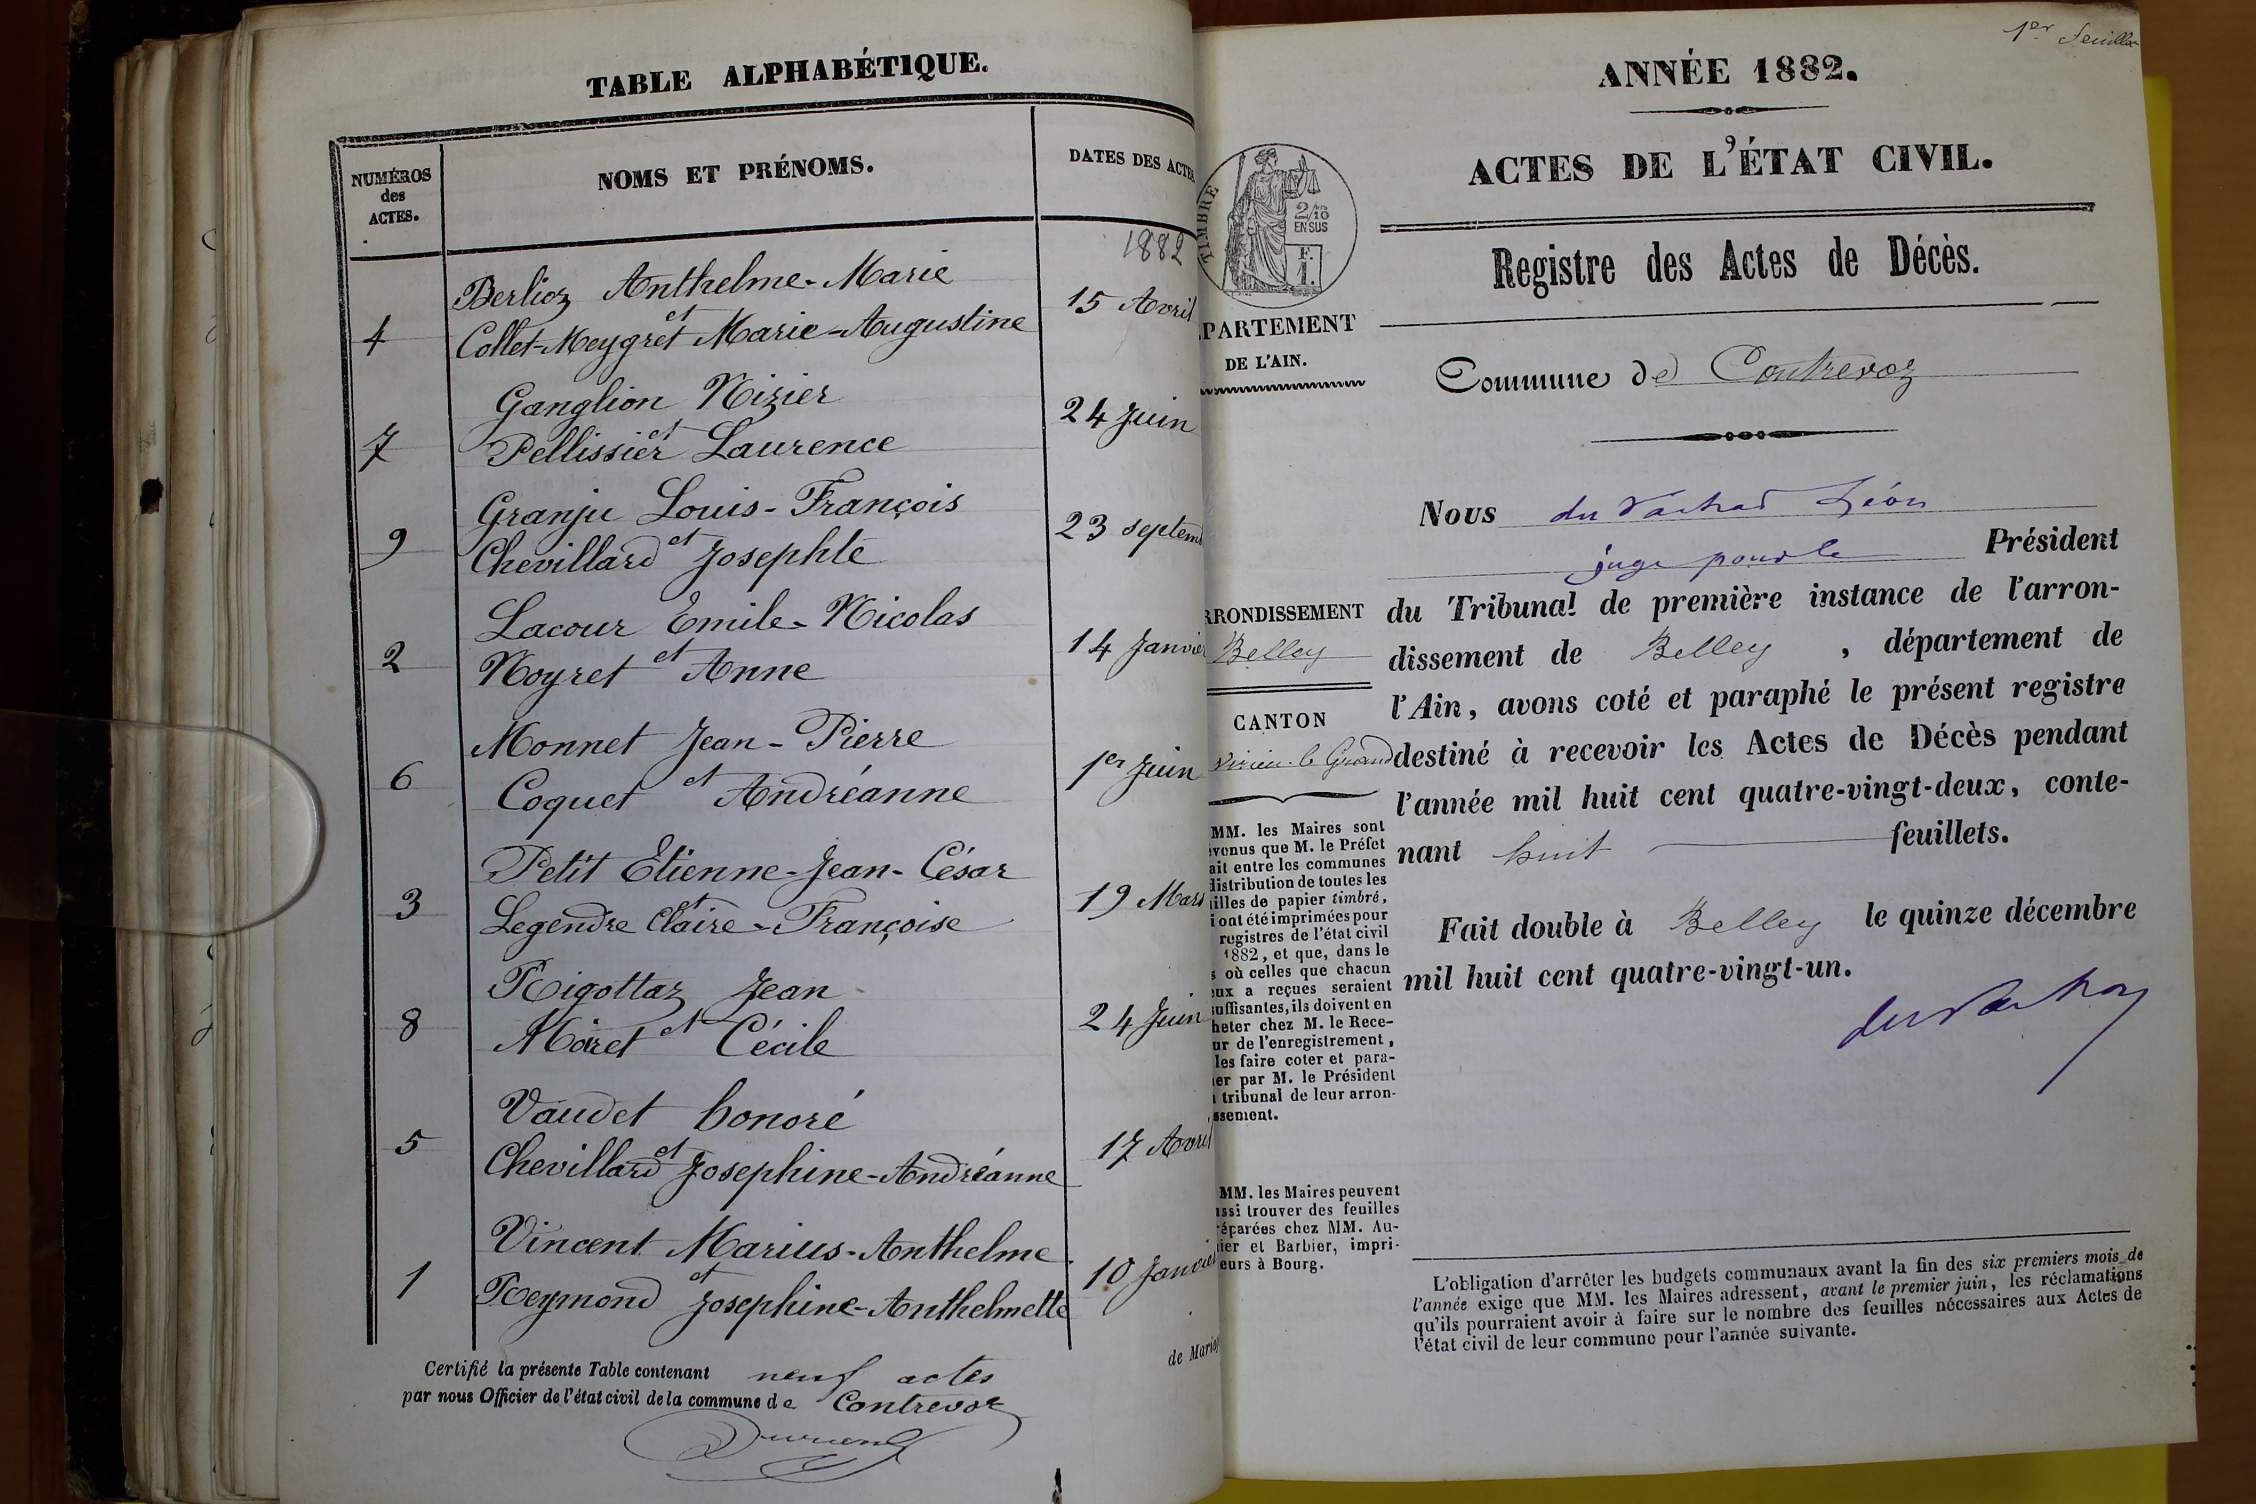 TABLE ALPHABÉTIQUE.
NUMÉROS
des
ACTES.
NOMS ET PRÉNOMS.
DATES DES ACTES
1882
Berlioz Anthelme-Marie
et
4 Collet-Meygret Marie-Augustine 15 Avril
Ganglion Nizier
et
7 Pellissier Laurence 24 Juin
Granju Louis-François
et
9 Chevillard Josephte 23 septem
Lacour Emile-Nicolas
et
2 Noyret Anne 14 Janvier
Monnet Jean-Pierre
et
6 Coquet Andréanne 1er Juin
Petit Etienne-Jean-César
et
3 Legendre Claire-Françoise 19 Mars
Rigottaz Jean
et
8 Moiret Cécile 24 Juin
Vaudet honoré
et
5 Chevillard Josephine-Andréanne 17 Avril
Vincent Marius-Anthelme
et
1 Reymond Josephine-Anthelmette 10 Janvier
de Mariag
Certifié la présente Table contenant neuf actes
par nous Officier de l'état civil de la commune de Contrevoz
1er feuillet
ANNÉE 1882.
ACTES DE L'ÉTAT CIVIL.
TIMBRE
2/10
EN SUS
F.
1.
Registre des Actes de Décès.
PARTEMENT
DE L'AIN.
Commune de Contrevoz
Nous Léon
juge pour le Président
du Tribunal de première instance de l'arron-
dissement de Belley, département de
l'Ain, avons coté et paraphé le présent registre
destiné à recevoir les Actes de Décès pendant
l'année mil huit cent quatre-vingt-deux, conte-
nant huit feuillets.
Fait double à Belley le quinze décembre
mil huit cent quatre-vingt-un.
RRONDISSEMENT
Belley
CANTON
Virieu-le-Grand
MM. les Maires sont
évenus que M. le Préfet
ait entre les communes
distribution de toutes les
illes de papier timbré,
i ont été imprimées pour
registres de l'état civil
1882, et que, dans le
s où celles que chacun
eux a reçues seraient
uffisantes, ils doivent en
heter chez M. le Rece-
ur de l'enregistrement,
les faire coter et para-
er par M. le Président
tribunal de leur arron-
ssement.
MM. les Maires peuvent
ussi trouver des feuilles
réparées chez MM. Au-
ier et Barbier, impri-
eurs à Bourg.
L'obligation d'arrêter les budgets communaux avant la fin des six premiers mois de
l'année exige que MM. les Maires adressent, avant le premier juin, les réclamations
qu'ils pourraient avoir à faire sur le nombre des feuilles nécessaires aux Actes de
l'état civil de leur commune pour l'année suivante.